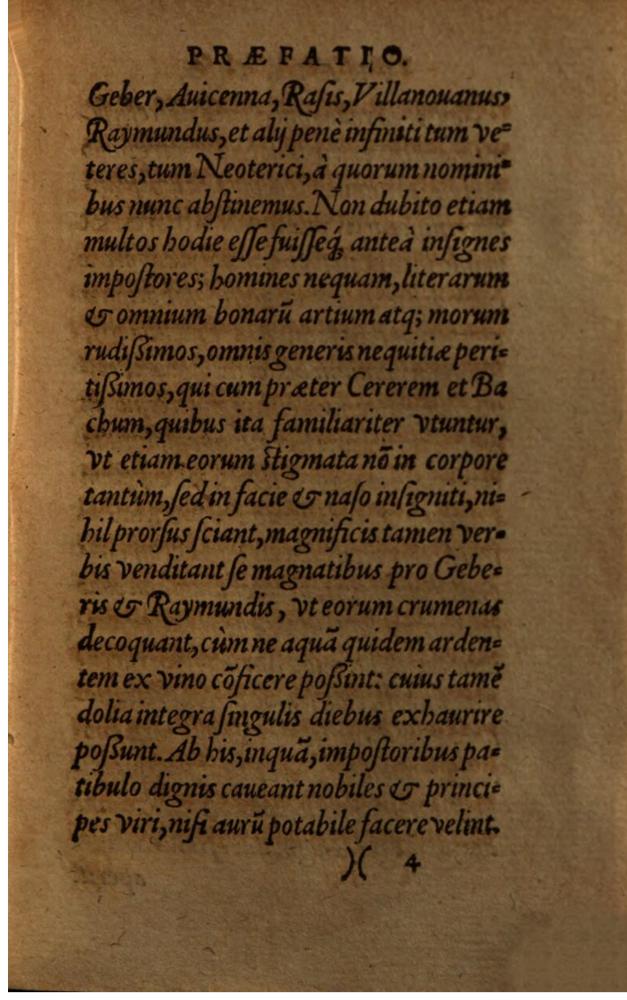 PRÆFATIO.
Geber, Auicenna, Rasis, Villanouanus,
Raymundus, et alij penè infiniti tum ve=
teres, tum Neoterici, à quorum nomini=
bus nunc abstinemus. Non dubito etiam
multos hodie esse fuisseq́; anteà insignes
impostores; homines nequam, literarum
& omnium bonarũ artium atq; morum
rudißimos, omnis generis nequitiæ peri=
tißimos, qui cum præter Cererem et Ba
chum, quibus ita familiariter vtuntur,
vt etiam eorum stigmata nõ in corpore
tantùm, sed in facie & naso insigniti, ni=
hil prorsus sciant, magnificis tamen ver=
bis venditant se magnatibus pro Gebe=
ris & Raymundis, vt eorum crumenas
decoquant, cùm ne aquã quidem arden=
tem ex vino cõficere poßint: cuius tamẽ
dolia integra singulis diebus exhaurire
poßunt. Ab his, inquã, impostoribus pa=
tibulo dignis caueant nobiles & princi=
pes viri, nisi aurũ potabile facere velint.
)( 4